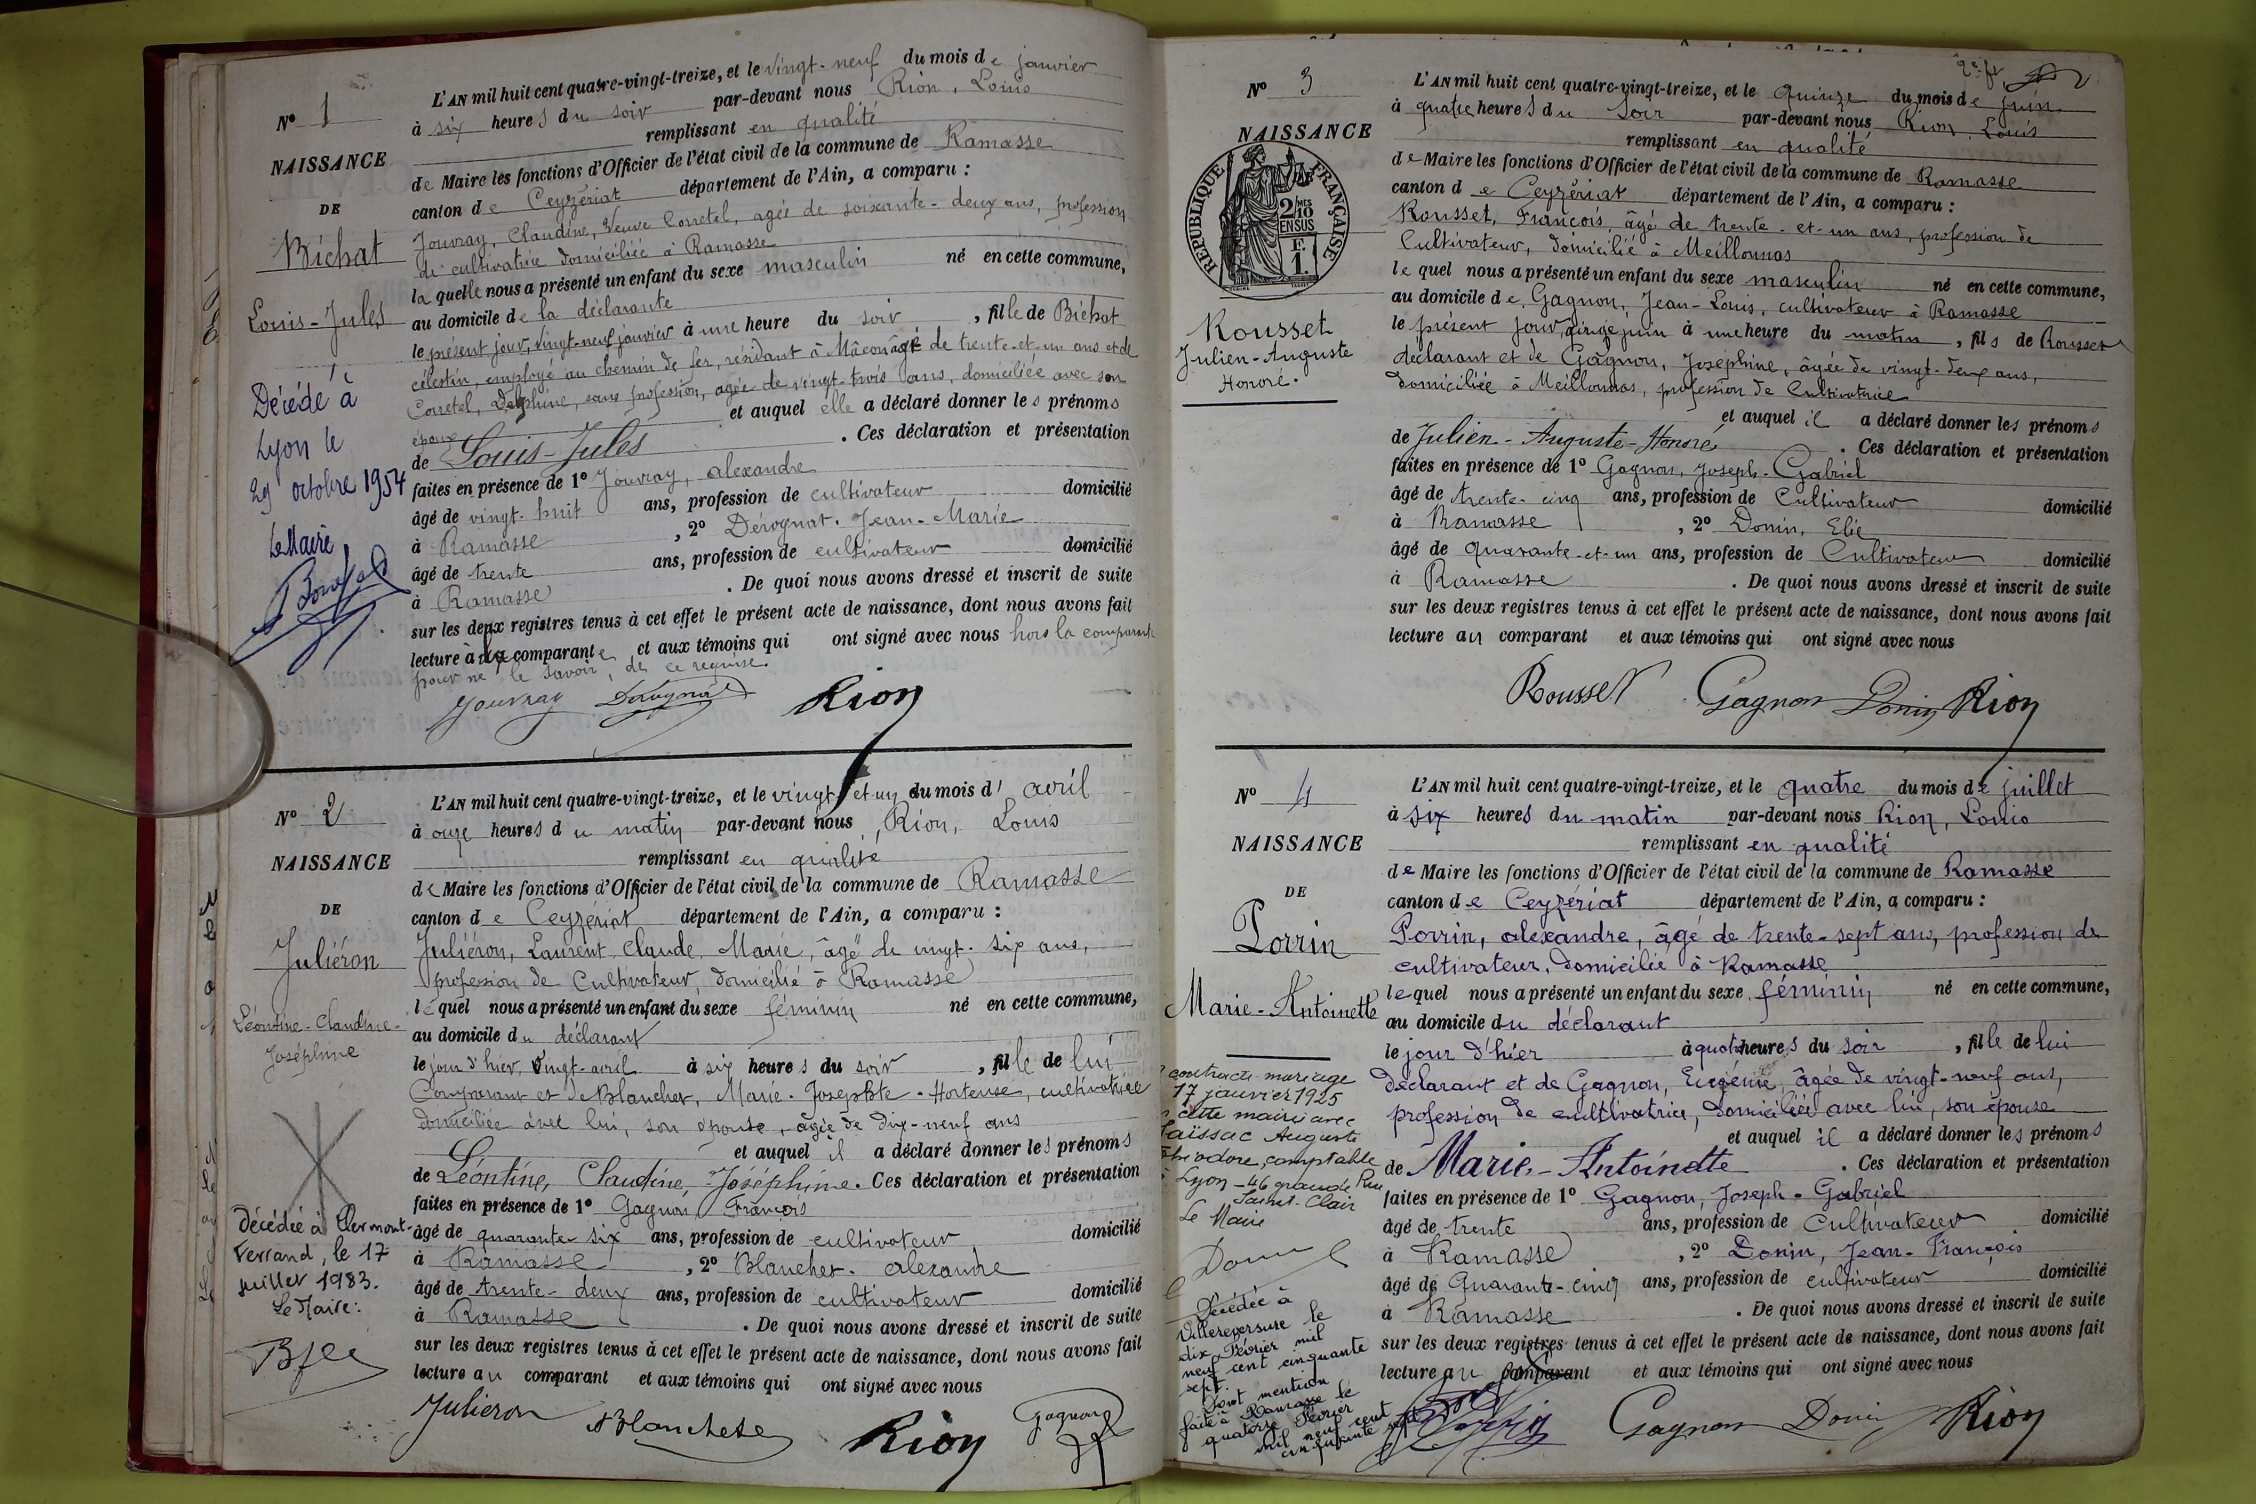 N° 1
NAISSANCE
DE
Bichat
Louis-Jules
Décédé à
Lyon le
29 octobre 1954
Le Maire
L'AN mil huit cent quatre-vingt-treize, et le vingt-neuf du mois de janvier
à six heures du soir par-devant nous Rion, Louis
remplissant en qualité
de Maire les fonctions d'Officier de l'état civil de la commune de Ramasse
canton de Ceyzériat département de l'Ain, a comparu :
Jouvray, Claudine, Veuve Corretel, agée de soixante-deux ans, profession
de cultivatrice domiciliée à Ramasse
laquelle nous a présenté un enfant du sexe masculin né en cette commune,
au domicile de la déclarante
le présent jour, vingt-neuf janvier à une heure du soir, fille de Bichat
célestin, employé au chemin de fer, résidant à Mâcon âgé de trente-et-un ans et de
Corretel, Delphine, sans profession, agée de vingt-trois ans, domiciliée avec son
époux et auquel elle a déclaré donner les prénoms
de Louis-Jules . Ces déclaration et présentation
faites en présence de 1° Jouvray, alexandre
âgé de vingt-huit ans, profession de cultivateur domicilié
à Ramasse , 2° Dérognat. Jean-Marie
âgé de trente ans, profession de cultivateur domicilié
à Ramasse . De quoi nous avons dressé et inscrit de suite
sur les deux registres tenus à cet effet le présent acte de naissance, dont nous avons fait
lecture à la comparante et aux témoins qui ont signé avec nous hors la comparante
pour ne le savoir, de ce requise.
Jouvray Dérognat Rion
N° 2
NAISSANCE
DE
Juliéron
Léontine-Claudine-
Joséphine
Décédée à Clermont-
Ferrand, le 17
juillet 1983.
Le Maire:
L'AN mil huit cent quatre-vingt-treize, et le vingt et un du mois d' avril
à onze heures du matin par-devant nous Rion, Louis
remplissant en qualité
de Maire les fonctions d'Officier de l'état civil de la commune de Ramasse
canton de Ceyzériat département de l'Ain, a comparu :
Juliéron, Laurent, Claude, Marie, âgé de vingt-six ans,
profession de Cultivateur, domicilié à Ramasse
lequel nous a présenté un enfant du sexe féminin né en cette commune,
au domicile du déclarant
le jour d'hier, vingt-avril à six heures du soir , fille de lui
Comparant et de Blanchet, Marie-Josephte-Hortense, cultivatrice
domiciliée avec lui, son épouse, agée de dix-neuf ans
et auquel il a déclaré donner les prénoms
de Léontine, Claudine, Joséphine. Ces déclaration et présentation
faites en présence de 1° Gagnon François
âgé de quarante-six ans, profession de cultivateur domicilié
à Ramasse , 2° Blanchet. alexandre
âgé de trente-deux ans, profession de cultivateur domicilié
à Ramasse . De quoi nous avons dressé et inscrit de suite
sur les deux registres tenus à cet effet le présent acte de naissance, dont nous avons fait
lecture au comparant et aux témoins qui ont signé avec nous
Juliéron Blanchet Rion Gagnon
2e ft.
N° 3
NAISSANCE
RÉPUBLIQUE FRANÇAISE
2/10 MES
EN SUS
F.
1.
Rousset
Julien-Auguste
Honoré.
L'AN mil huit cent quatre-vingt-treize, et le quinze du mois de juin
à quatre heures du soir par-devant nous Rion, Louis
remplissant en qualité
de Maire les fonctions d'Officier de l'état civil de la commune de Ramasse
canton de Ceyzériat département de l'Ain, a comparu :
Rousset, François, âgé de trente-et-un ans, profession de
Cultivateur, domicilié à Meillonnas
lequel nous a présenté un enfant du sexe masculin né en cette commune,
au domicile de Gagnon, Jean-Louis, cultivateur à Ramasse
le présent jour, quinze juin à une heure du matin , fils de Rousset
déclarant et de Gagnon, Joséphine, âgée de vingt-deux ans,
domiciliée à Meillonnas, profession de Cultivatrice
et auquel il a déclaré donner les prénoms
de Julien-Auguste-Honoré . Ces déclaration et présentation
faites en présence de 1° Gagnon, Joseph-Gabriel
âgé de trente-cinq ans, profession de Cultivateur domicilié
à Ramasse , 2° Donin, Elie
âgé de quarante-et-un ans, profession de Cultivateur domicilié
à Ramasse . De quoi nous avons dressé et inscrit de suite
sur les deux registres tenus à cet effet le présent acte de naissance, dont nous avons fait
lecture au comparant et aux témoins qui ont signé avec nous
Rousset Gagnon Donin Rion
N° 4
NAISSANCE
DE
Porrin
Marie-Antoinette
contracté mariage
17 janvier 1925
cette mairie avec
Auguste
comptable
Lyon - 46 grande Rue
Saint-Clair
Le Maire
Décédée à
Villereversure le
dix Février mil
neuf cent cinquante
sept.
Dont mention
faite à Ramasse le
quatorze Février
mil neuf cent
cinquante sept
L'AN mil huit cent quatre-vingt-treize, et le quatre du mois de juillet
à six heures du matin par-devant nous Rion, Louis
remplissant en qualité
de Maire les fonctions d'Officier de l'état civil de la commune de Ramasse
canton de Ceyzériat département de l'Ain, a comparu :
Porrin, alexandre, âgé de trente-sept ans, profession de
cultivateur, domicilié à Ramasse
lequel nous a présenté un enfant du sexe féminin né en cette commune,
au domicile du déclarant
le jour d'hier à quatre heures du soir , fille de lui
déclarant et de Gagnon, Eugénie, âgée de vingt-neuf ans,
profession de cultivatrice, domiciliée avec lui, son épouse
et auquel il a déclaré donner les prénoms
de Marie-Antoinette . Ces déclaration et présentation
faites en présence de 1° Gagnon, Joseph-Gabriel
âgé de trente ans, profession de Cultivateur domicilié
à Ramasse , 2° Donin, Jean-François
âgé de Quarante-cinq ans, profession de cultivateur domicilié
à Ramasse . De quoi nous avons dressé et inscrit de suite
sur les deux registres tenus à cet effet le présent acte de naissance, dont nous avons fait
lecture au comparant et aux témoins qui ont signé avec nous
Porrin Gagnon Donin Rion